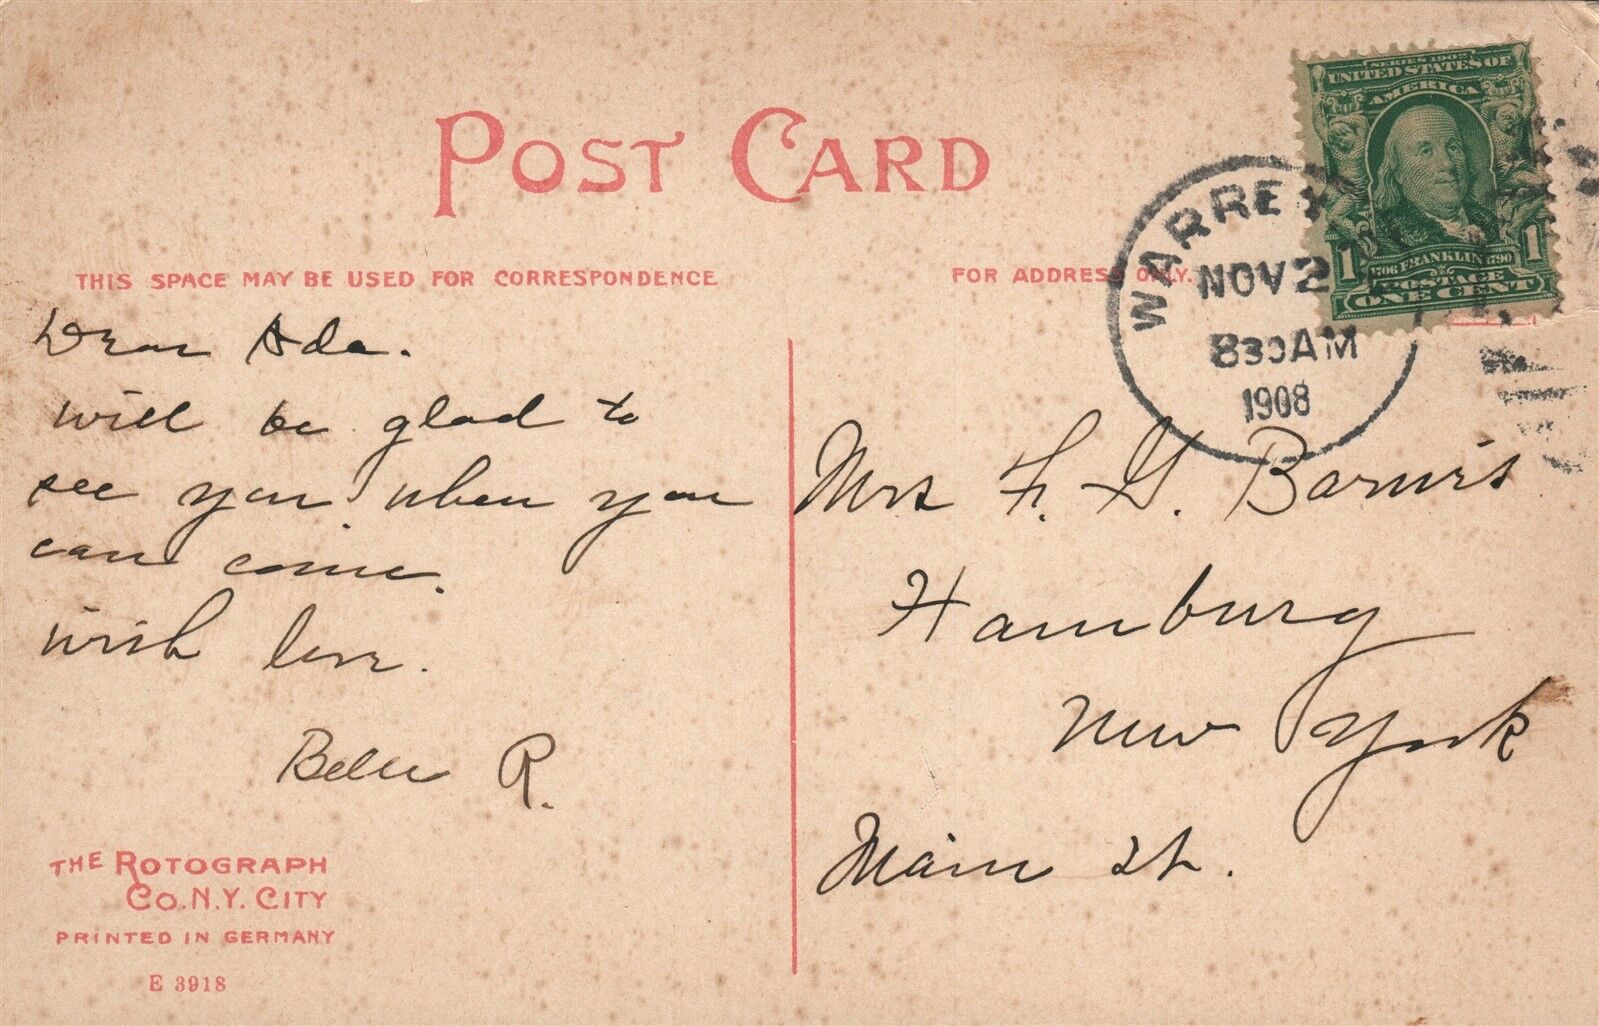 POST CARD
THIS SPACE MAY BE USED FOR CORRESPONDENCE
FOR ADDRESS ONLY.
SERIES 1902
UNITED STATES OF
AMERICA
1706 FRANKLIN 1790
1 POSTAGE 1
ONE CENT
WARREN
NOV 2
830AM
1908
Dear Ada.
will be glad to
see you when you
can come.
with love.
Belle R.
Mrs F. G.
Hamburg
New York
Main St.
THE ROTOGRAPH
CO. N.Y. CITY
PRINTED IN GERMANY
E 3918